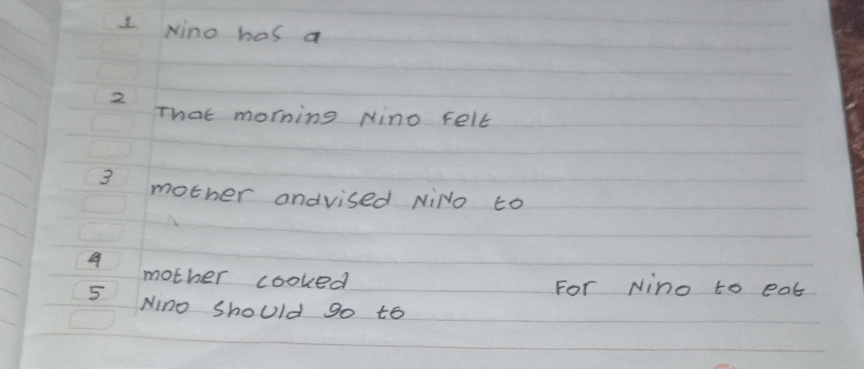 1 Nino has a
2 That morning Nino felt
3 mother andvised NiNo to
4 mother cooked For Nino to eat
5 Nino should go to